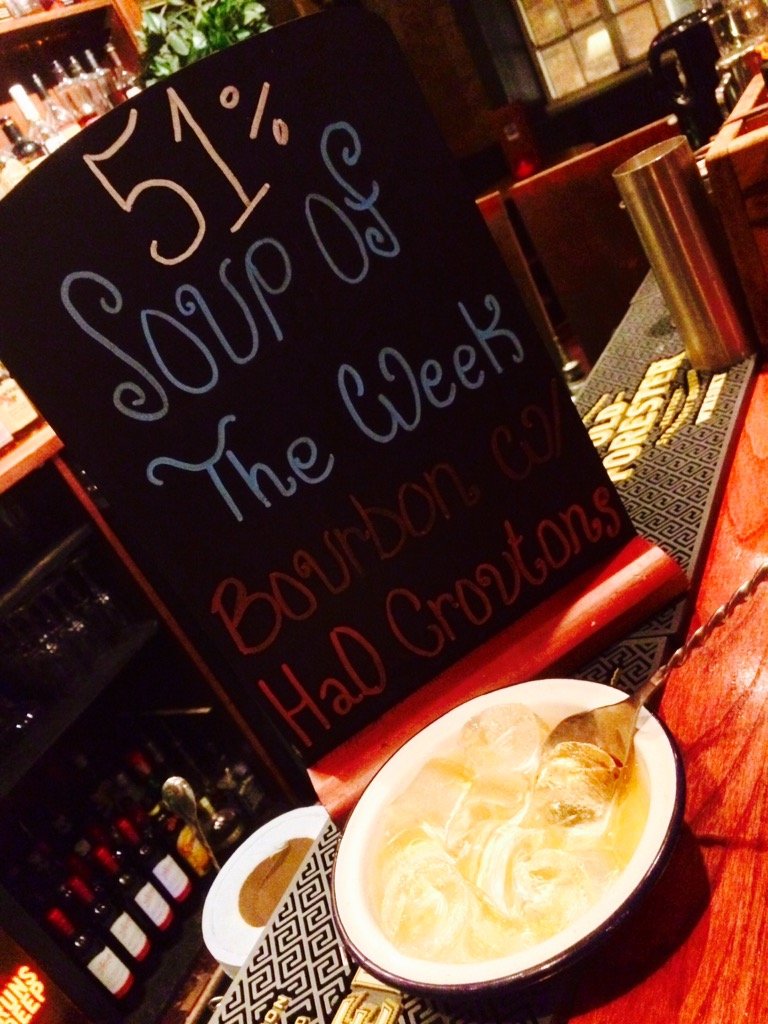 51%
Soup Of
The Week
Bourbon w/
H2O Croutons
OLD
FORESTER